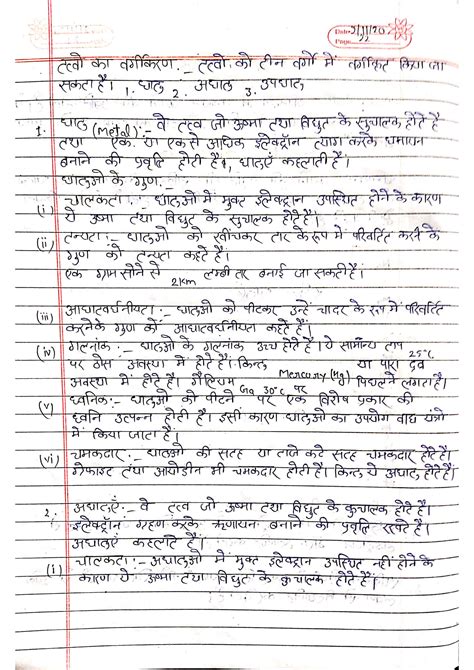 Date 5/11/20
Page 22
तत्वो का वर्गीकरण :- तत्वो को तीन वर्गो में वर्गीकृत किया जा
सकता है। 1. धातु 2. अधातु 3. उपधातु
1. धातु (Metal) :- वे तत्व जो ऊष्मा तथा विद्युत के सुचालक होते है
तथा एक या एक से अधिक इलेक्ट्रॉन त्याग करके धनायन
बनाने की प्रवृति होती है, धातुएं कहलाती है।
धातुओ के गुण :-
(i) चालकता :- धातुओ में मुक्त इलेक्ट्रान उपस्थित होने के कारण
ये ऊष्मा तथा विद्युत के सुचालक होते है।
(ii) तन्यता :- धातुओ को खींचकर तार के रूप में परिवर्तित करने के
गुण को तन्यता कहते है।
एक ग्राम सोने से 2km लम्बी तार बनाई जा सकती है।
(iii) आघातवर्धनीयता :- धातुओ को पीटकर उन्हें चादर के रूप में परिवर्तित
करने के गुण को आघातवर्धनीयता कहते है।
(iv) गलनांक :- धातुओ के गलनांक उच्च होते है। ये सामान्य ताप 25°C
पर ठोस अवस्था में होते है। किन्तु Mercury (Hg) या पारा द्रव
अवस्था में होते है। गैलियम Ga 30°C पर पिघलने लगता है।
(v) ध्वनिक :- धातुओ को पीटने पर एक विशेष प्रकार की
ध्वनि उत्पन्न होती है। इसी कारण धातुओ का उपयोग वाद्य यंत्रो
में किया जाता है।
(vi) चमकदार :- धातुओ की सतह या ताजे कटे सतह चमकदार होते है।
ग्रेफाइट तथा आयोडीन भी चमकदार होती है। किन्तु ये अधातु होते है।
2. अधातुएँ :- वे तत्व जो ऊष्मा तथा विद्युत के कुचालक होते है।
इलेक्ट्रॉन ग्रहण करके ऋणायन बनाने की प्रवृति रखते है।
अधातुएं कहलाते है।
(i) चालकता :- अधातुओ में मुक्त इलेक्ट्रान उपस्थित नहीं होने के
कारण ये ऊष्मा तथा विद्युत के कुचालक होते है।